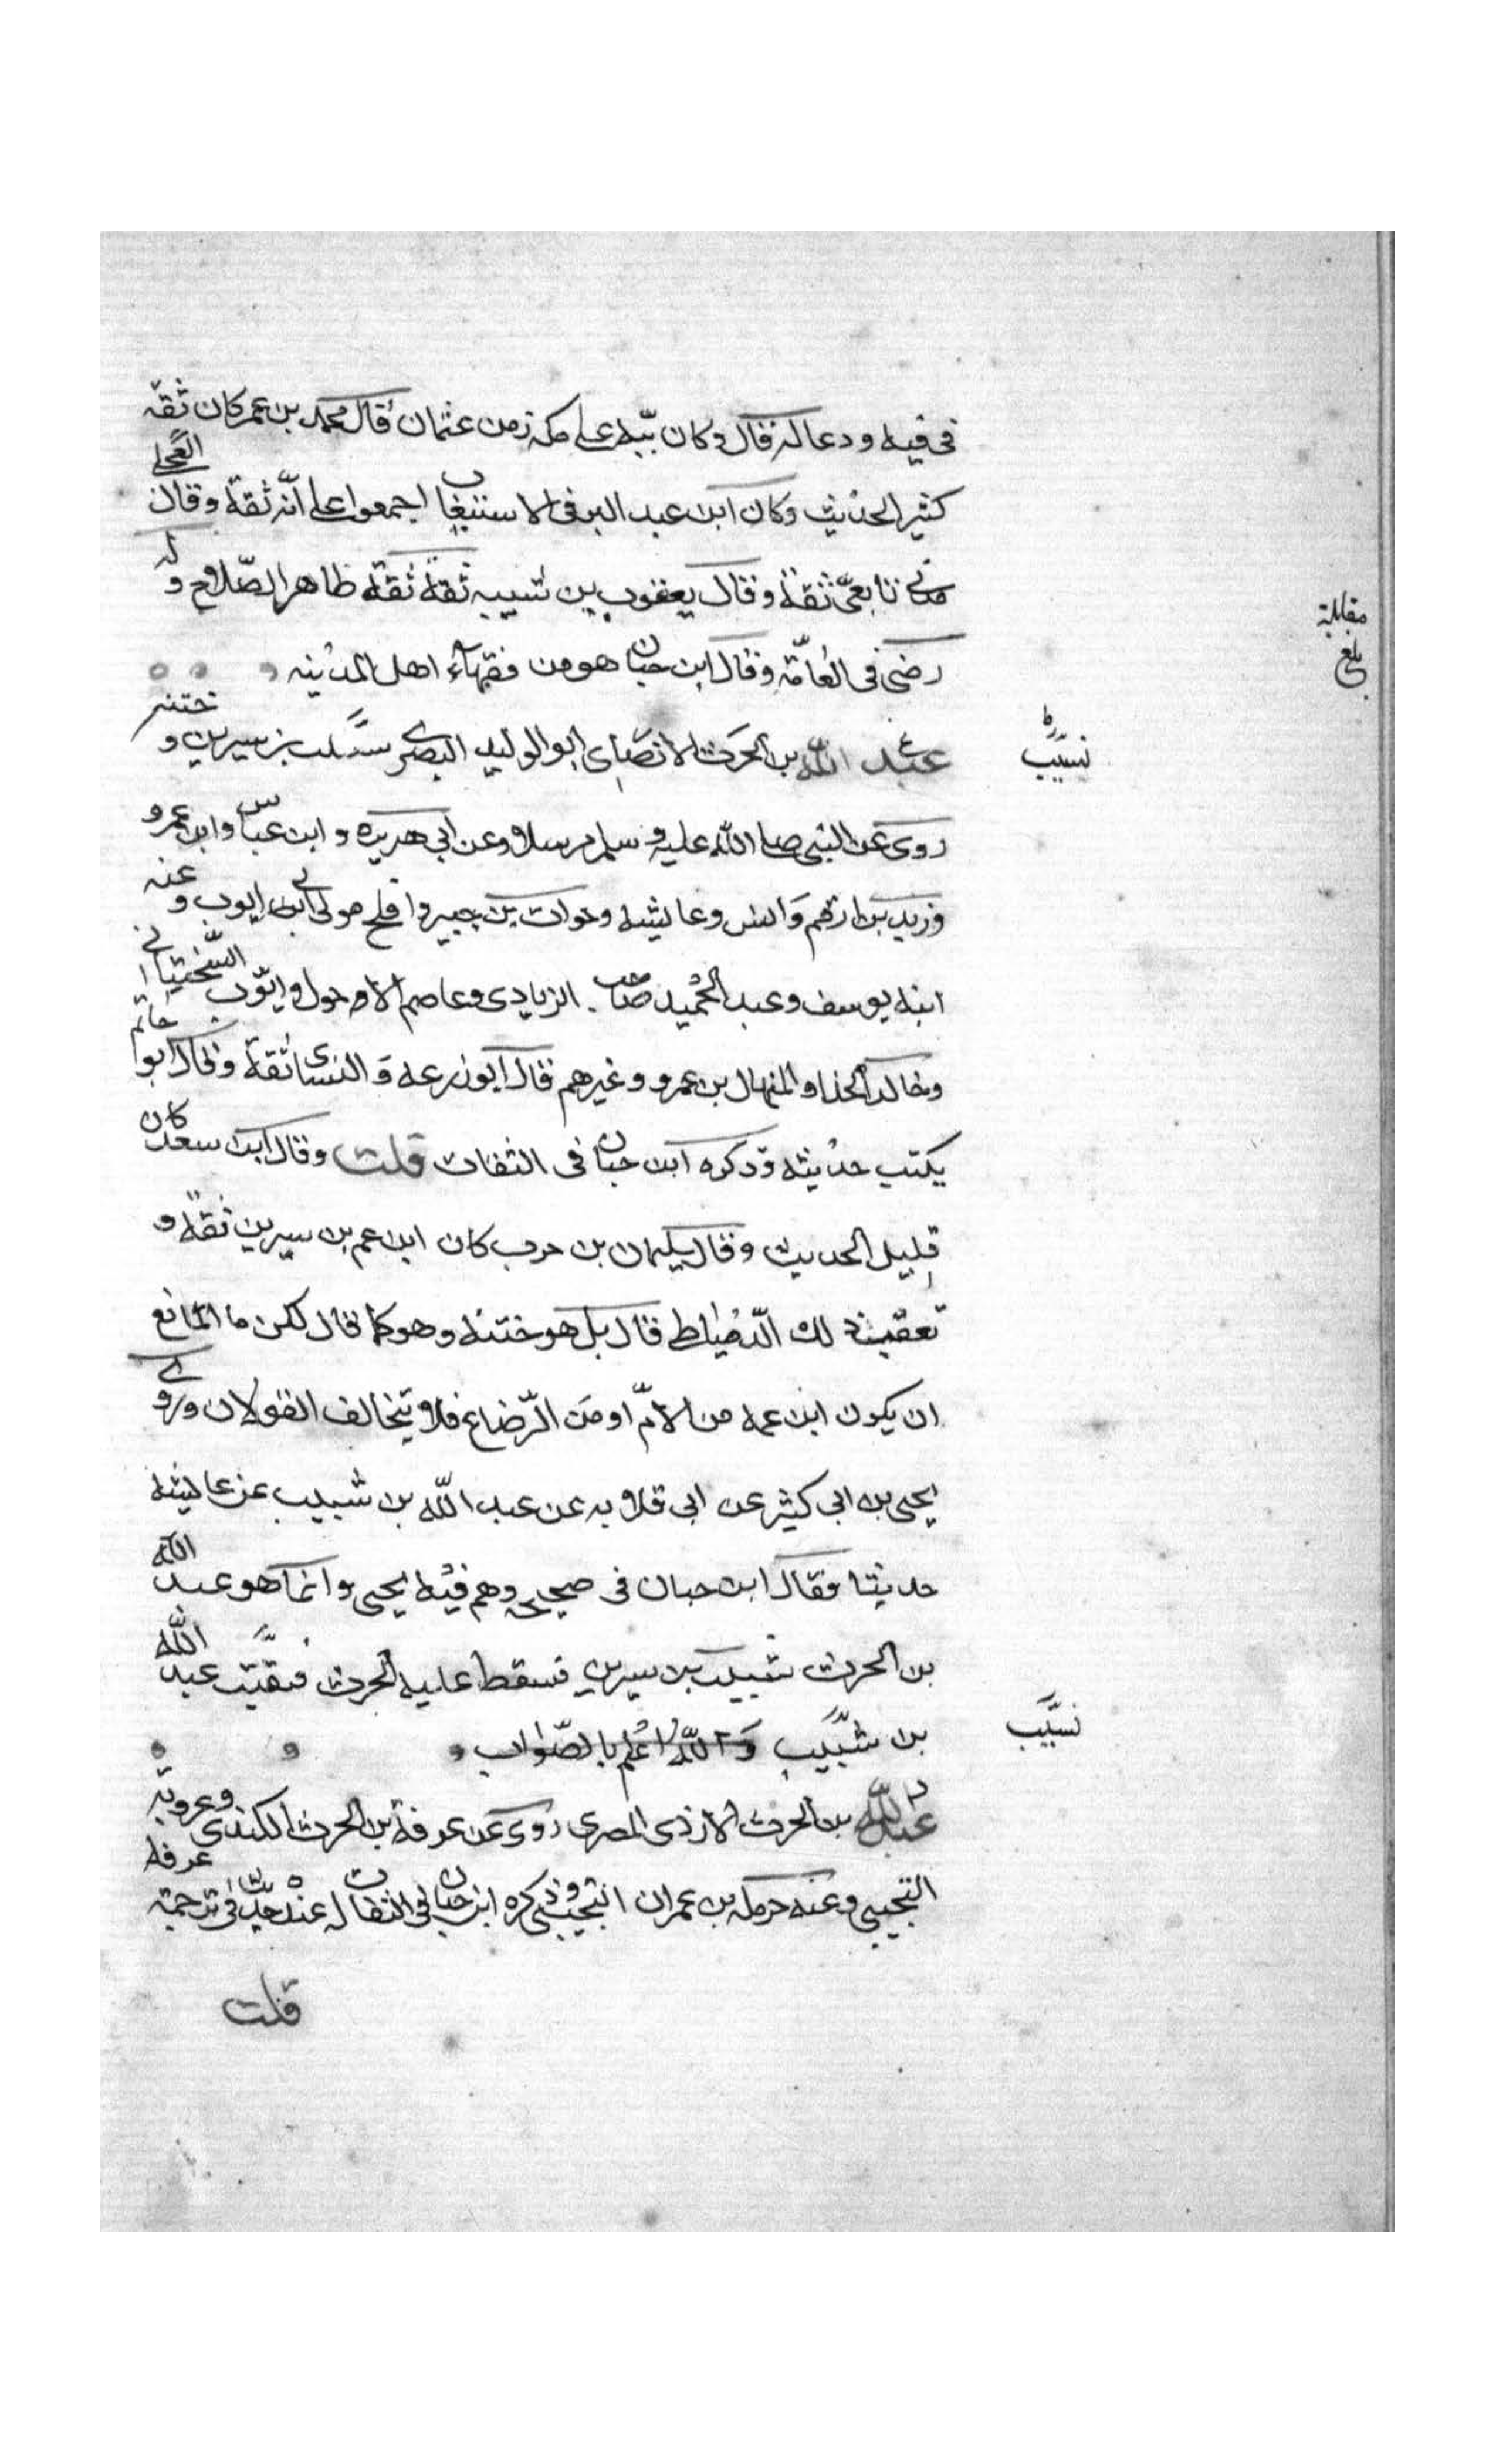 فى فيه ودعا له قال وكان ببه على مكه زمن عثمان قال محمد بن عمر كان ثقه
كثير الحديث وكان ابن عبد البر فى الاستيعاب اجمعوا على انّه ثقة وقال العجلى
مدنى تابعىّ ثقة وقال يعقوب بن شيبه ثقة ثقة ظاهر الصّلاح وله
رضى فى العامّة وقال ابن حبان هو من فقهاء اهل المدينه
عبد الله بن الحرث الانصارى ابو الوليد البصرى نسيب بن سيرين وختنه
روى عن النبى صلى الله عليه وسلم مرسلا وعن ابى هريره وابن عباس وابن عمرو
وزيد بن ارقم وانس وعايشه وخوات بن جبير وافلح مولى ابى ايوب وعنه
ابنه يوسف وعبد الحميد صاحب الزيادى وعاصم الاحول وايّوب السّختيانى
وخالد الحذا والمنهال بن عمرو وغيرهم قال ابو زرعه والنسائى ثقة وقال ابو حاتم
يكتب حديثه وذكره ابن حبان فى الثقات قلت وقال ابن سعد كان
قليل الحديث وقال سليمان بن حرب كان ابن عم بن سيرين ثقة و
تعقب ذلك الدّمياطى قال بل هو ختنه وهو كما قال لكن ما المانع
ان يكون ابن عمه من الامّ او من الرّضاع فلا يتخالف القولان وروى
يحيى بن ابى كثير عن ابى قلابه عن عبد اللّه بن شبيب عن عايشه
حديثا فقال ابن حبان فى صحيحه وهم فيه يحيى وانما هو عبد الله
بن الحرث نسيب بن سيرين فسقط عليه الحرث فبقيت عبد اللّه
بن نسيب واللّه اعلم بالصّواب
عبد اللّه بن الحرث الازدى المصرى روى عن عرفة بن الحرث الكندى وعروبة
التجيبى وعنه حرمله بن عمران التجيبى وذكره ابن حبان فى الثقات له عنده حديث فى ترجمة عرفه
قلت
مقابلة
بلغ
نسيب
نسيب